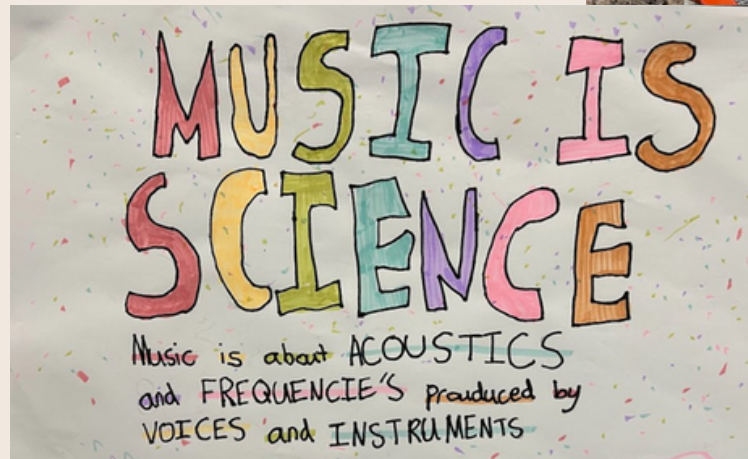 MUSIC IS
SCIENCE
Music is about ACOUSTICS
and FREQUENCIE'S prouduced by
VOICES and INSTRUMENTS